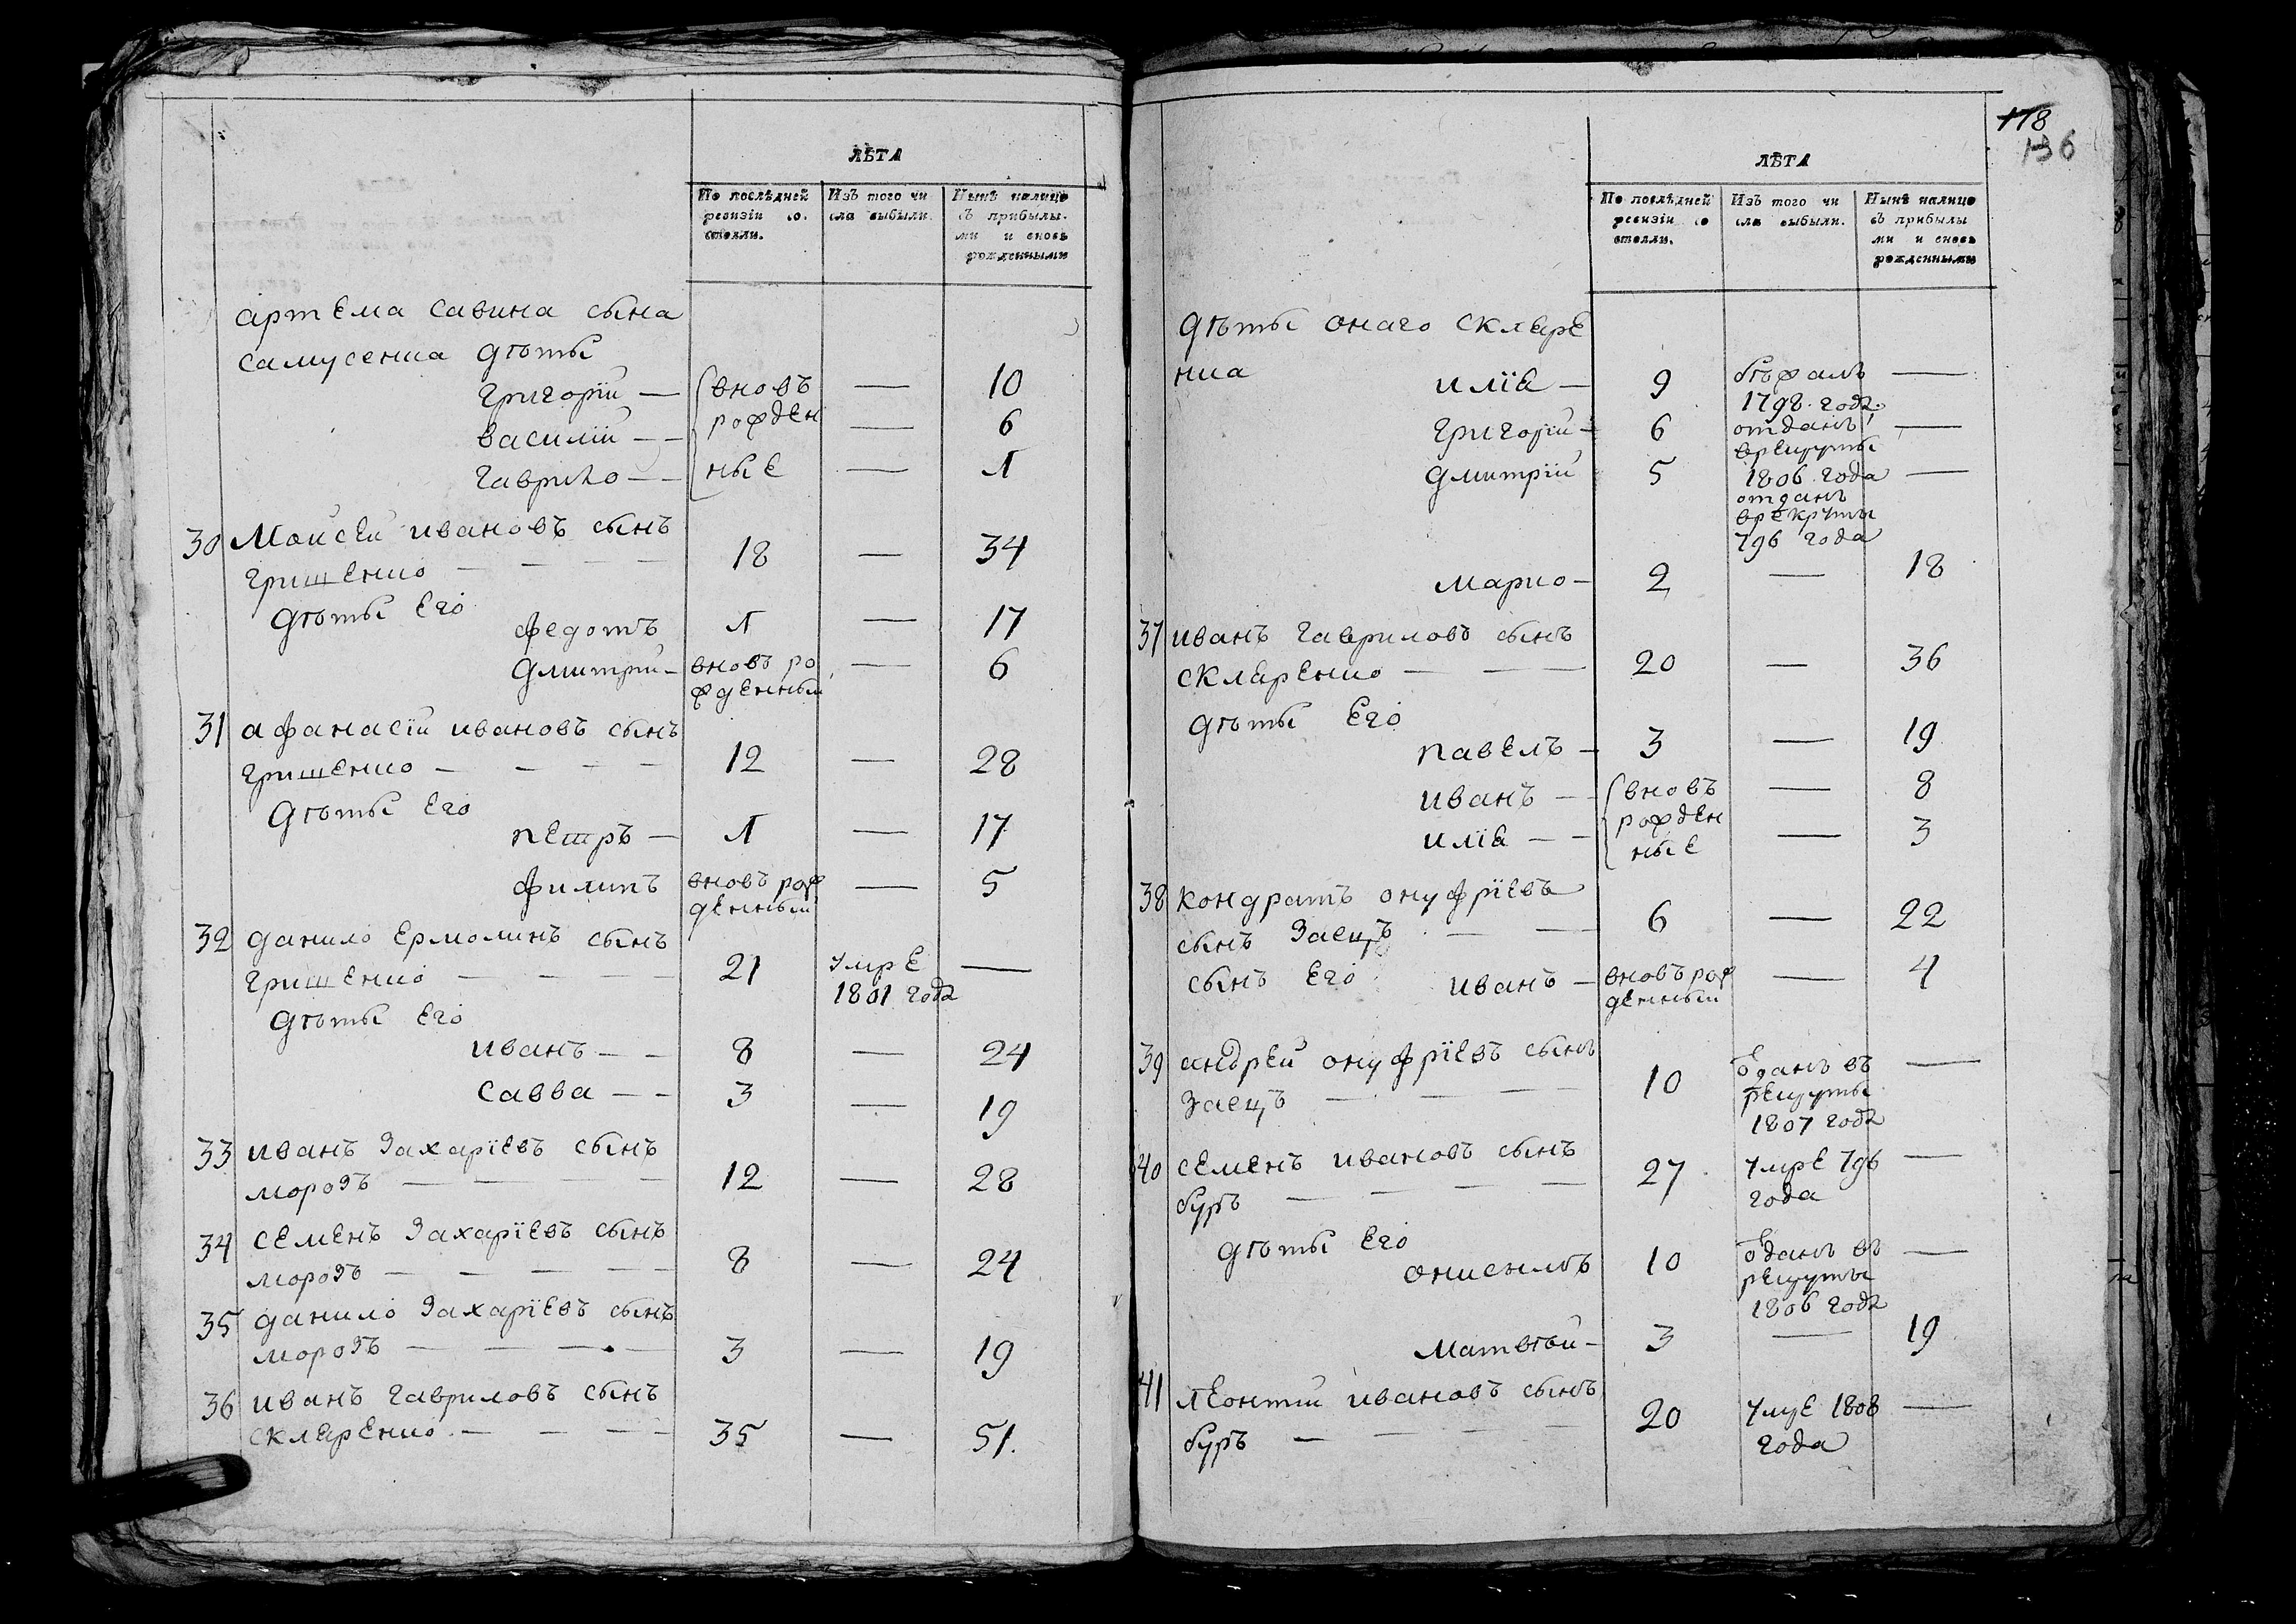 ЛѢТА
По послѣдней ревизіи со­стояли.
Изъ того чи­сла выбыли.
Нынѣ налицо съ прибылы­ми и вновь рожденными
артема савина сына
самусенка дѣты
григорій — вновъ — 10
василій — — рожден — 6
гаврило — — ные — 1
30 Моисей ивановъ сынъ
грищенко — — — — 18 — 34
дѣты его
федотъ 1 — 17
дмитрій — вновъ ро — 6
жденный
31 афанасій ивановъ сынъ
грищенко — — — — 12 — 28
дѣты его
петръ — 1 — 17
филипъ вновъ рож — 5
денный
32 данило ермолинъ сынъ
грищенко — — — 21 умре —
1801 года
дѣты его
иванъ — — 8 — 24
савва — — 3 — 19
33 иванъ захаріевъ сынъ
морозъ — — — — 12 — 28
34 семенъ захаріевъ сынъ
морозъ — — — — 8 — 24
35 данило захаріевъ сынъ
морозъ — — — — 3 — 19
36 иванъ гавриловъ сынъ
скляренко — — — — 35 — 51.
118
136
ЛѢТА
По послѣдней ревизіи со­стояли.
Изъ того чи­сла выбыли.
Нынѣ налицо съ прибылы­ми и вновь рожденными
дѣты онаго скляре
нка илія — 9 бѣжалъ —
1798. года.
григорій — 6 отданъ —
врекруты
дмитрій 5 1806. года —
отданъ
врекруты
796 года
марко — 2 — 18
37 иванъ гавриловъ сынъ
скляренко — — — 20 — 36
дѣты его
павелъ — 3 — 19
иванъ — — вновъ — 8
илія — — рожден — 3
ные
38 кондратъ онуфріевъ
сынъ заецъ — — 6 — 22
сынъ его иванъ — вновъ рож — 4
денный
39 андрей онуфріевъ сынъ
заецъ — — — 10 ѿданъ въ —
рекруты
1807 года
40 семенъ ивановъ сынъ
буръ — — — — 27 умре 796 —
года
дѣты его
онисимъ 10 ѿданъ въ —
рекруты
1806 года
матвѣй — 3 — 19
41 леонтій ивановъ сынъ
буръ — — — — 20 умре 1808 —
года